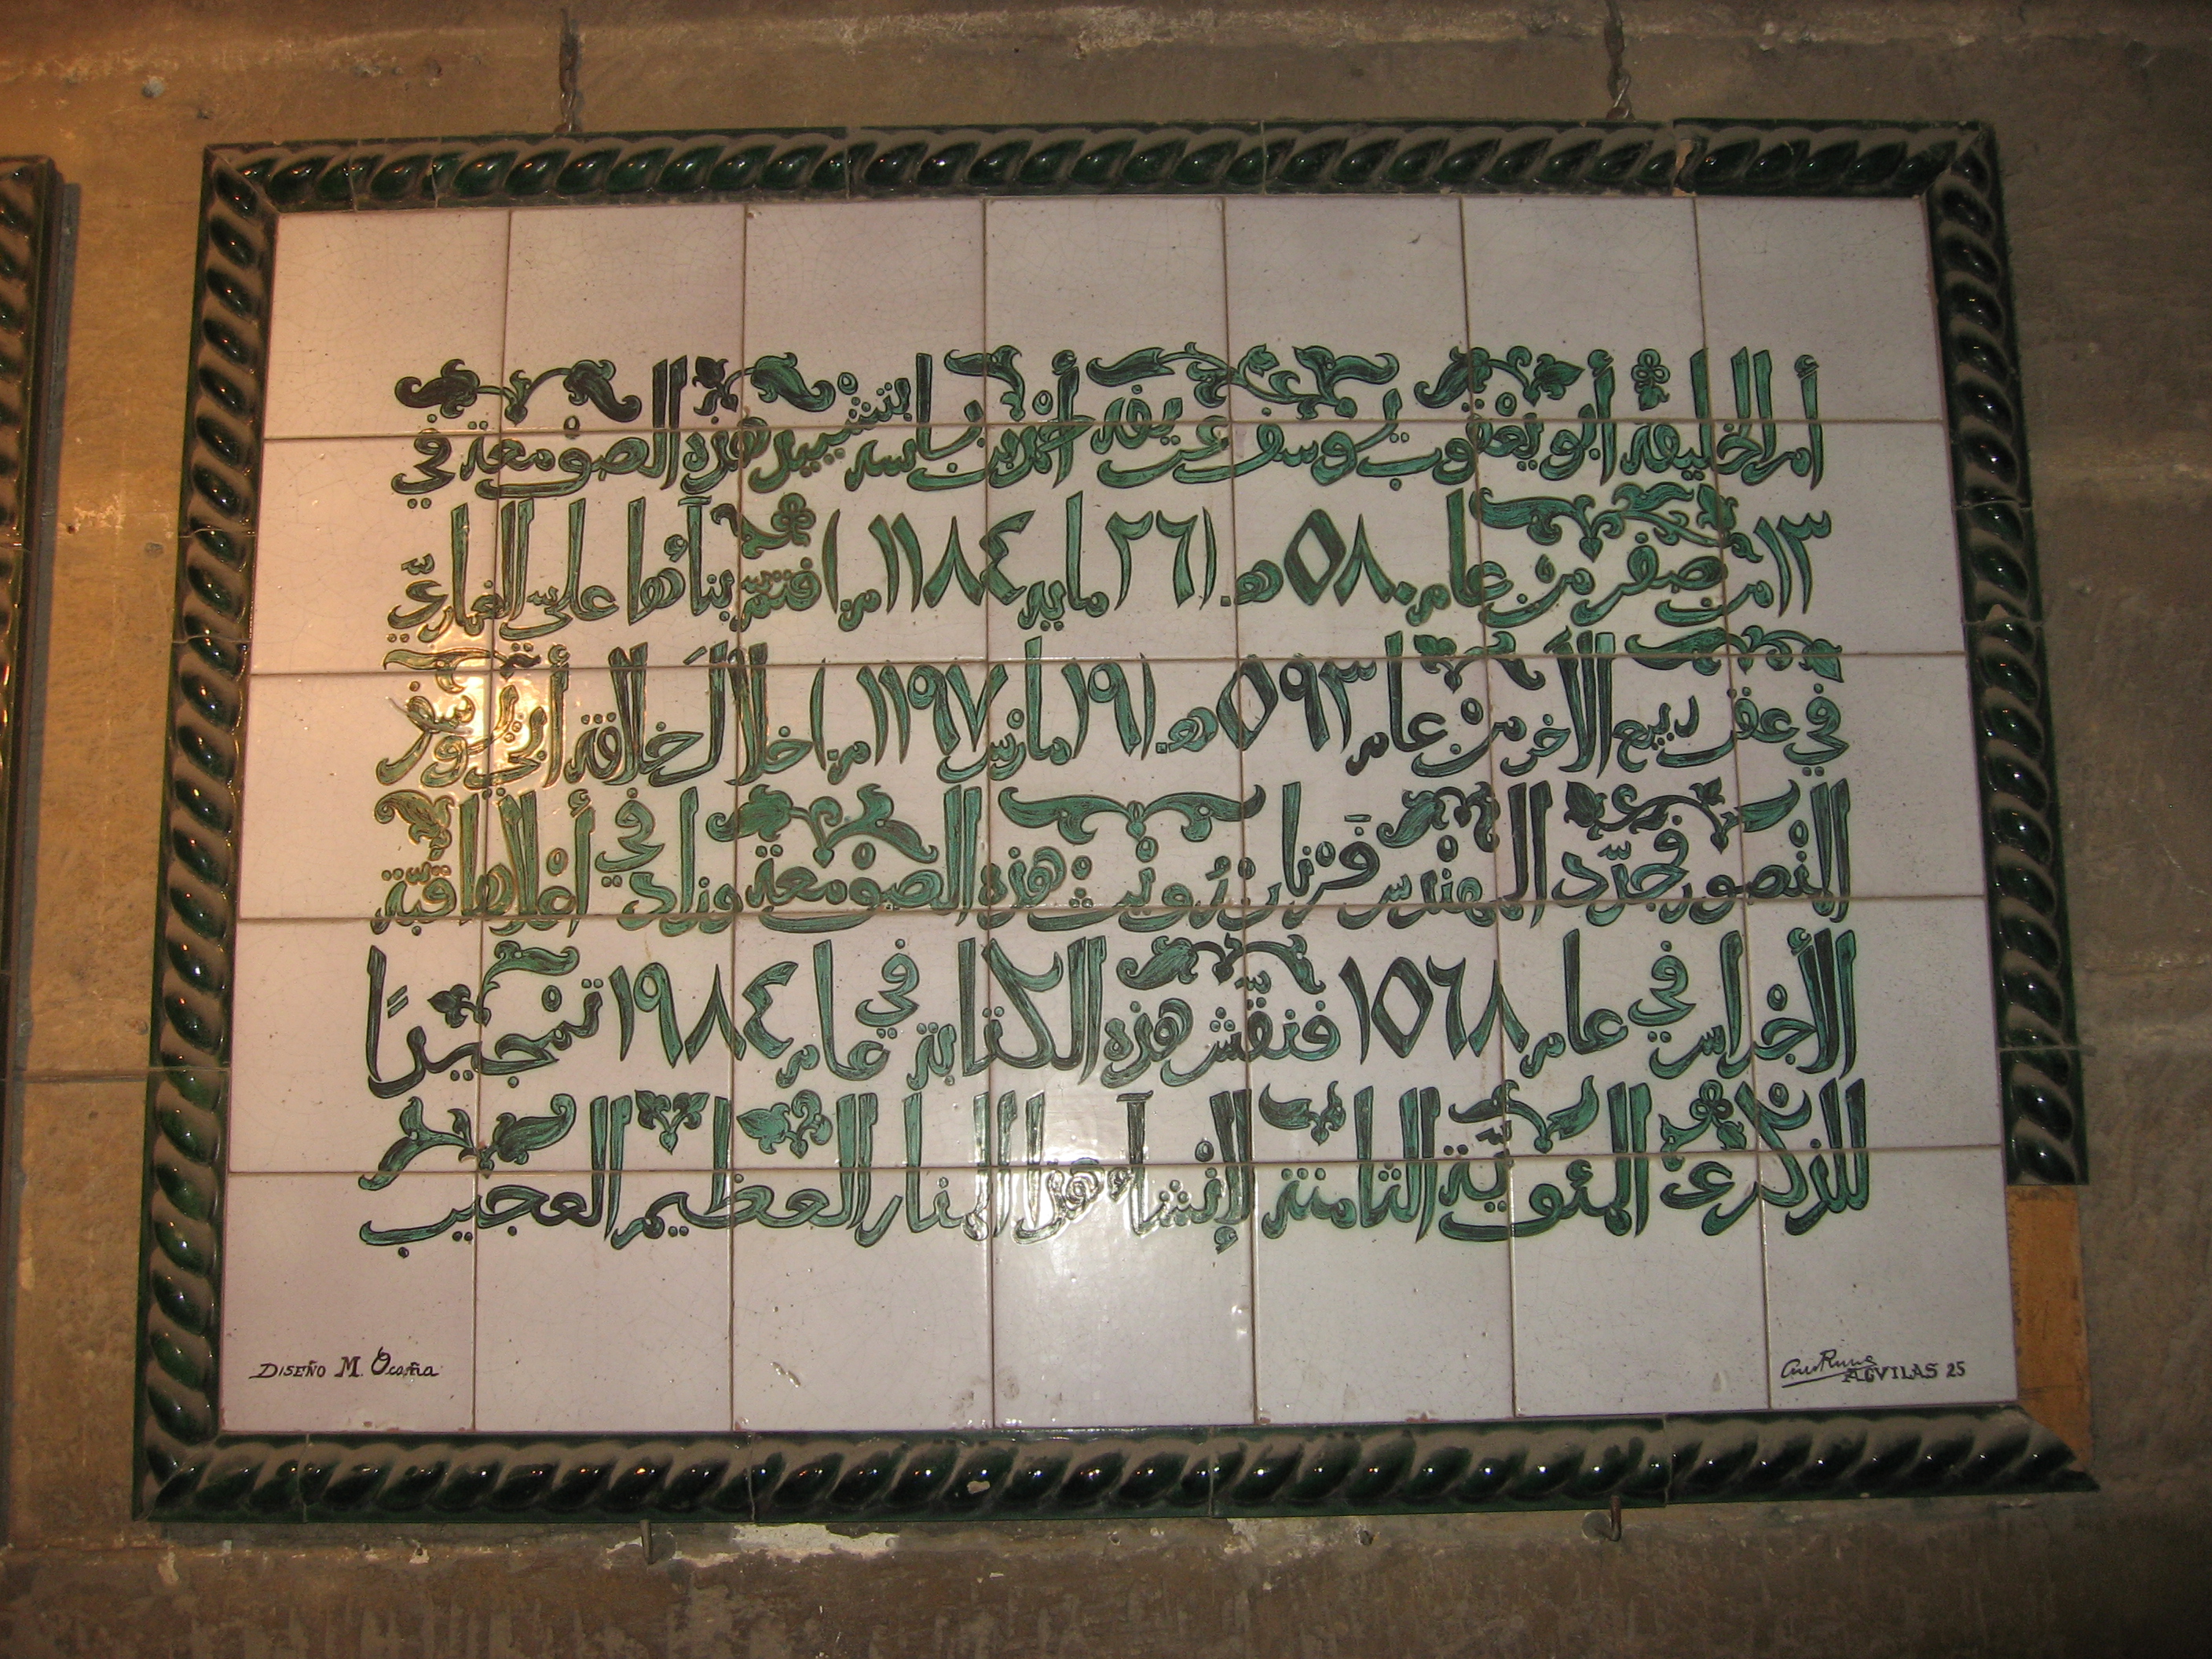 أمر الخليفة أبو يعقوب يوسف عريفه أحمد بن باسه بتشييد هذه الصومعة في
١٣ من صفر من عام ٥٨٠ هـ. (٢٦ مايه ١١٨٤ م.) فتمّ بناؤها على الغماريّ
في عقب ربيع الآخر من عام ٥٩٣ هـ. (١٩ مارس ١١٩٧ م.) خلالَ خلافة أبي يوسف
المنصور فجدّد المهندس فرنان رُويث هذه الصومعة وزاد في أعلاها قبّة
الأجراس في عام ١٥٦٨ فنقّش هذه الكتابة في عام ١٩٨٤ تمجيدًا
للذكرى المئويّة الثامنة لإنشآء هذا المنار العظيم العجيب
DISEÑO M. Ocaña
AGVILAS 25